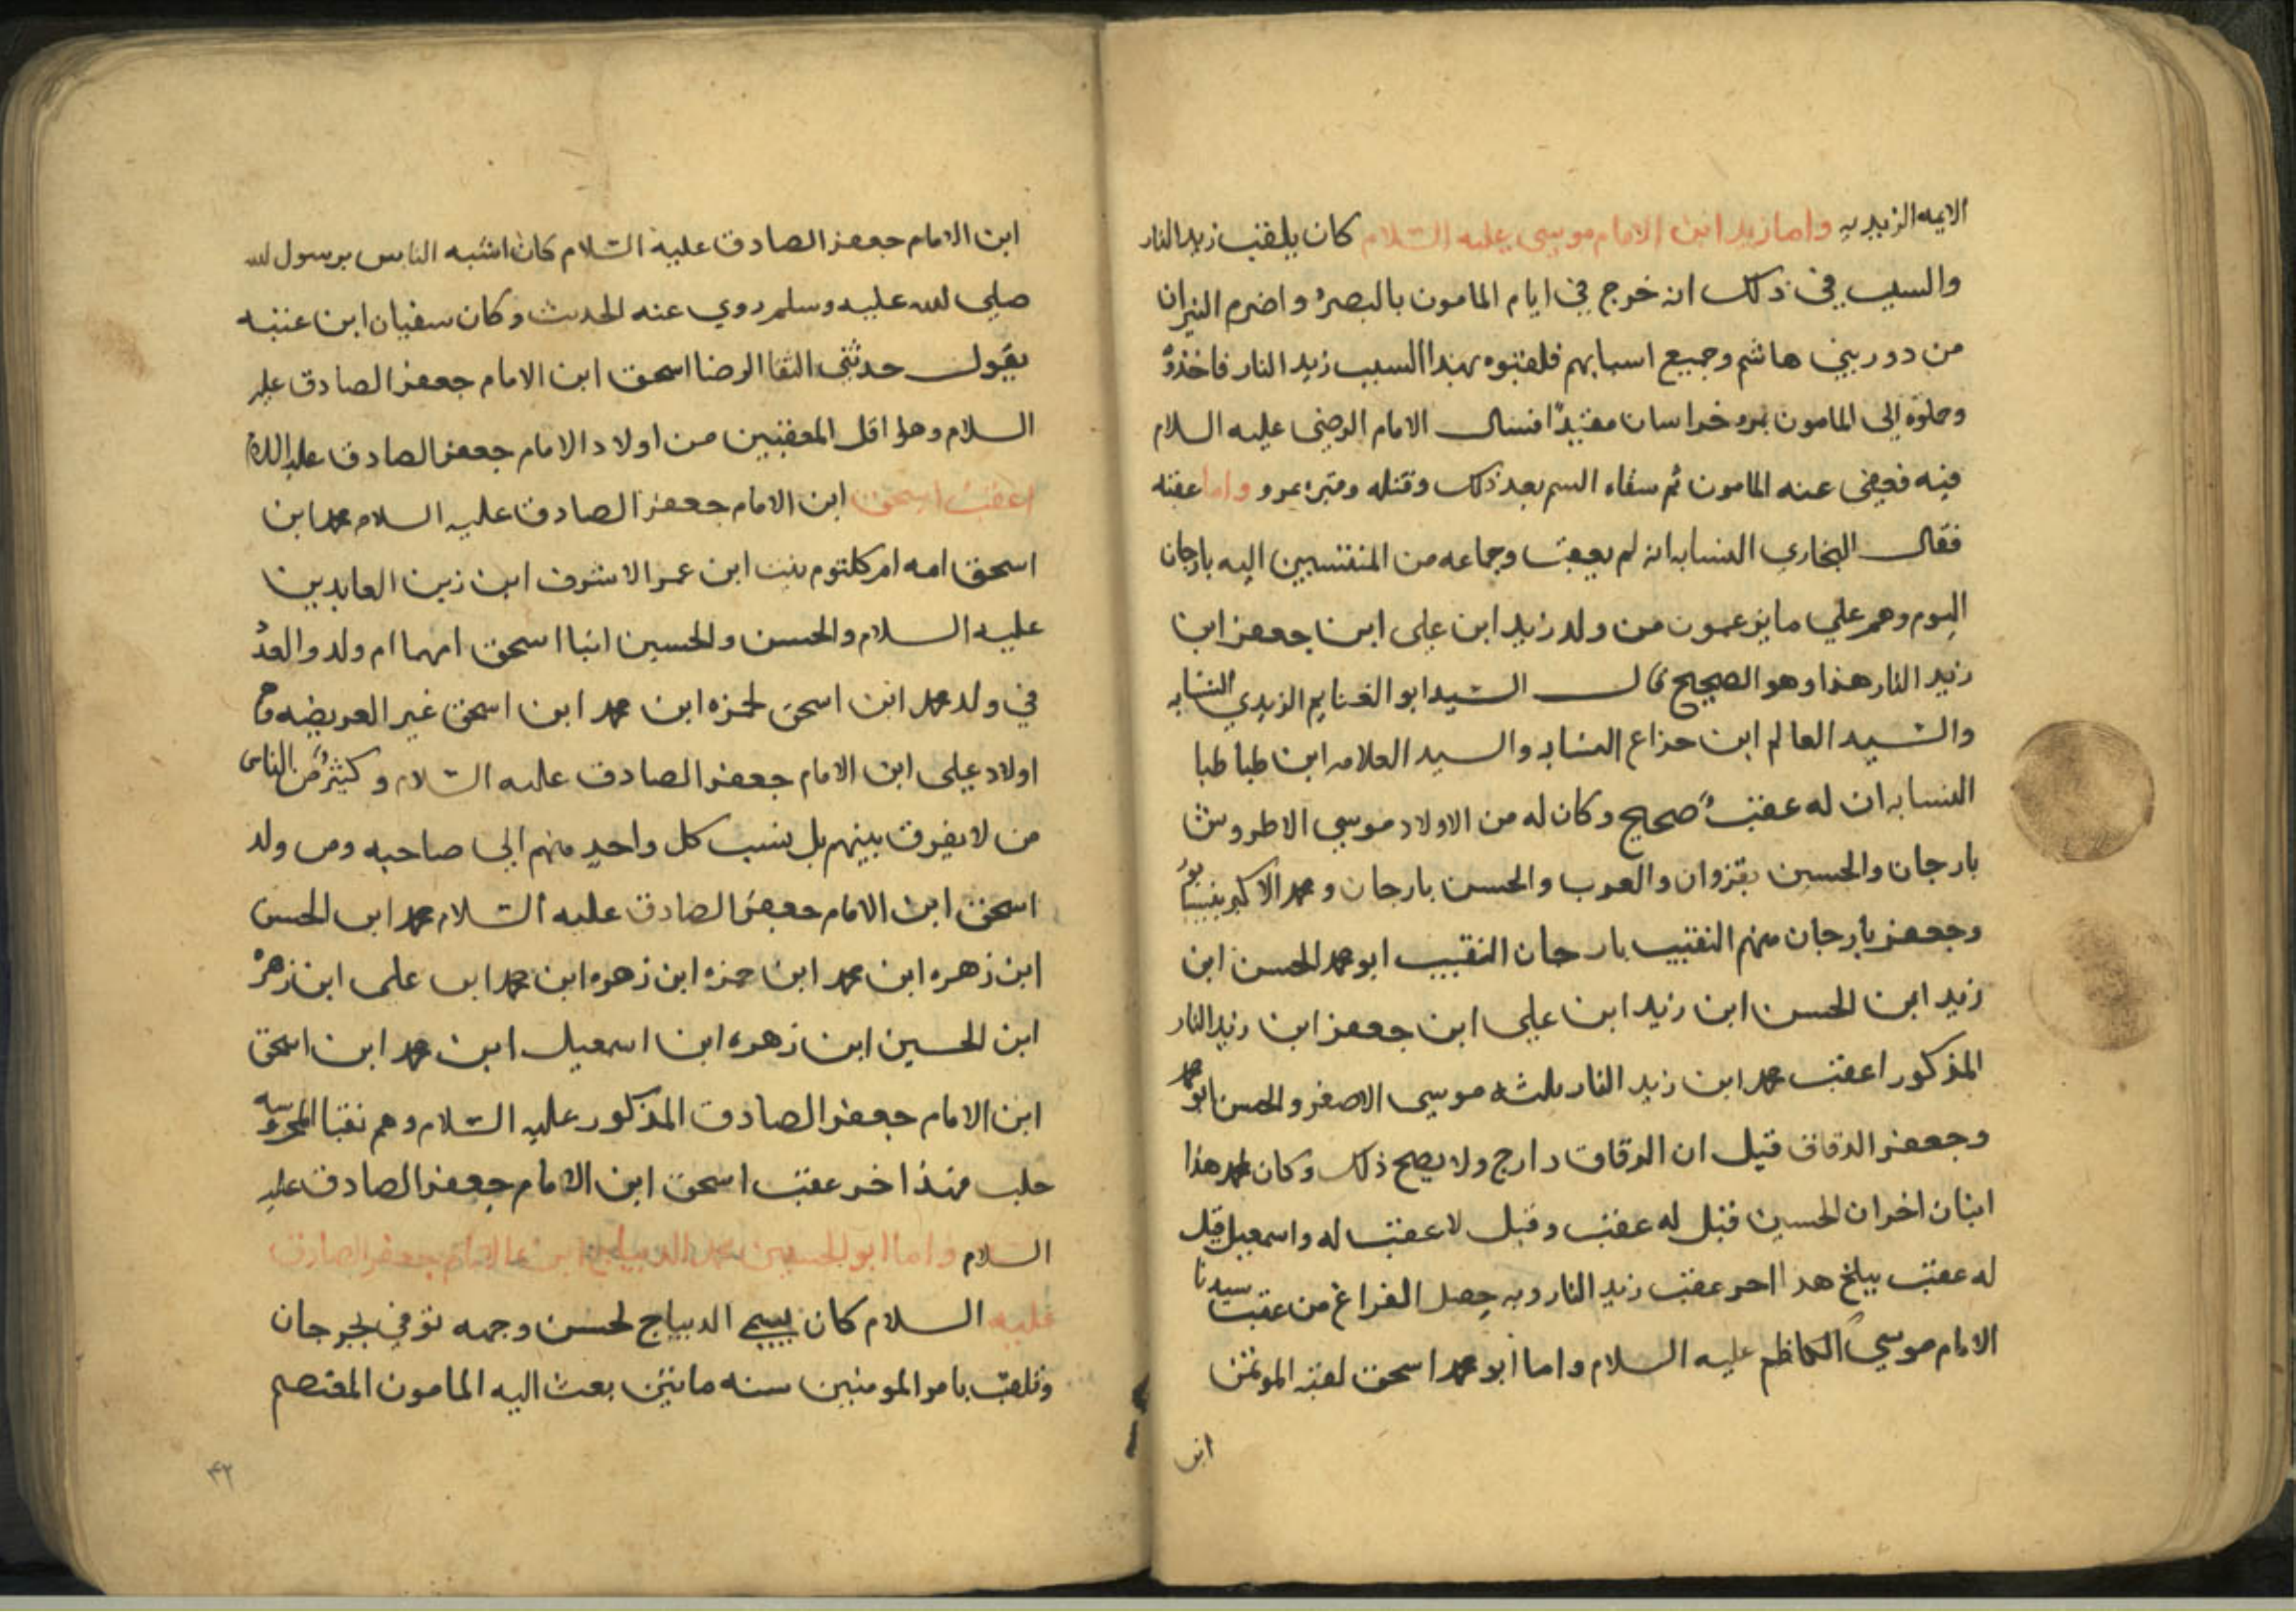 الايمه الزيديه واما زيد ابن الامام موسى عليه السلام كان يلقب زيد النار
والسبب في ذلك انه خرج في ايام المامون بالبصره واضرم النيران
من دور بني هاشم وجميع اسبابهم فلقبوه بهذا السبب زيد النار فاخذوه
وحملوه الى المامون بمرو خراسان مقيدا فسال الامام الرضى عليه السلام
فيه فعفى عنه المامون ثم سقاه السم بعد ذلك وقتله وقبره بمرو واما عقبه
فقال البخاري النسابه انه لم يعقب وجماعه من المنتسبين اليه بارجان
اليوم وهم على ما يزعمون من ولد زيد ابن على ابن جعفر ابن
زيد النار هذا وهو الصحيح قال السيد ابو الغنايم الزيدي النسابه
والسيد العالم ابن خداع النسابه والسيد العلامه ابن طباطبا
النسابه ان له عقب صحيح وكان له من الاولاد موسي الاطروش
بارجان والحسين بقزوان والعرب والحسن بارجان ومحمد الاكبر
وجعفر بارجان منهم النقيب بارجان النقيب ابو محمد الحسن ابن
زيد ابن الحسن ابن زيد ابن علي ابن جعفر ابن زيد النار
المذكور اعقب محمد ابن زيد النار ثلثه موسى الاصغر والحسن ابو محمد
وجعفر الدقاق قيل ان الدقاق دارج ولا يصح ذلك وكان لمحمد هذا
ابنان اخران الحسين قيل له عقب وقيل لا عقب له واسمعيل قيل
له عقب ببلخ هذا اخر عقب زيد النار وبه حصل الفراغ من عقب سيدنا
الامام موسي الكاظم عليه السلام واما ابو محمد اسحق لقبه الموتمن
ابن
ابن الامام جعفر الصادق عليه السلام كان اشبه الناس برسول الله
صلى الله عليه وسلم روي عنه الحديث وكان سفيان ابن عتبه
يقول حدثني الثقا الرضا اسحق ابن الامام جعفر الصادق عليه
السلام وهو اقل المعقبين من اولاد الامام جعفر الصادق عليه السلام
اعقب اسحق ابن الامام جعفر الصادق عليه السلام محمد ابن
اسحق امه ام كلثوم بنت ابن عمر الاشرف ابن زين العابدين
عليه السلام والحسن والحسين ابنا اسحق امهما ام ولد والعدد
في ولد محمد ابن اسحق لحمزه ابن محمد ابن اسحق غير العريضه وهم
اولاد علي ابن الامام جعفر الصادق عليه السلام وكثير من الناس
من لا يفرق بينهم بل ينسب كل واحد منهم الى صاحبه ومن ولد
اسحق ابن الامام جعفر الصادق عليه السلام محمد ابن الحسن
ابن زهره ابن محمد ابن حمزه ابن زهره ابن محمد ابن على ابن زهره
ابن الحسين ابن زهره ابن اسمعيل ابن محمد ابن اسحق
ابن الامام جعفر الصادق المذكور عليه السلام وهم نقبا المحروسه
حلب فهذا اخر عقب اسحق ابن الامام جعفر الصادق عليه
السلام واما ابو الحسين محمد الديباج ابن الامام جعفر الصادق
عليه السلام كان يسمى الديباج لحسن وجهه توفي بجرجان
وتلقب بامر المومنين سنه مايتين بعث اليه المامون المعتصم
٤٢